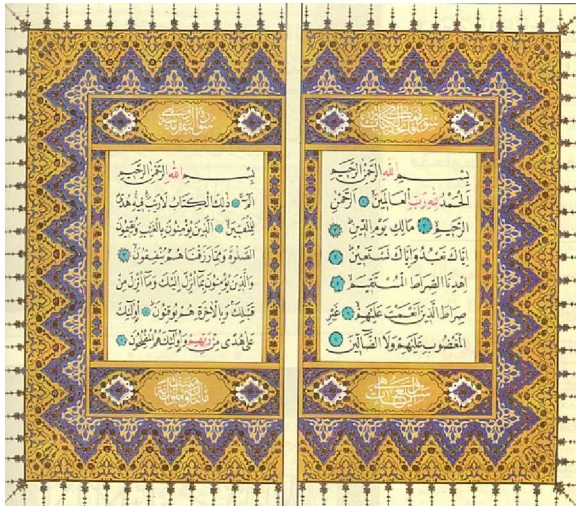 سورة فاتحة الكتاب
بِسْمِ اللهِ الرَّحْمٰنِ الرَّحِيمِ
اَلْحَمْدُ لِلّٰهِ رَبِّ الْعَالَمِينَ اَلرَّحْمٰنِ
الرَّحِيمِ مَالِكِ يَوْمِ الدِّينِ
اِيَّاكَ نَعْبُدُ وَاِيَّاكَ نَسْتَعِينُ
اِهْدِنَا الصِّرَاطَ الْمُسْتَقِيمَ
صِرَاطَ الَّذِينَ اَنْعَمْتَ عَلَيْهِمْ غَيْرِ
الْمَغْضُوبِ عَلَيْهِمْ وَلَا الضَّالِّينَ
وهي سبع آيات
سورة البقرة
بِسْمِ اللهِ الرَّحْمٰنِ الرَّحِيمِ
الٓمٓ ذٰلِكَ الْكِتَابُ لَا رَيْبَ فِيهِ هُدًى
لِلْمُتَّقِينَ اَلَّذِينَ يُؤْمِنُونَ بِالْغَيْبِ وَيُقِيمُونَ
الصَّلٰوةَ وَمِمَّا رَزَقْنَاهُمْ يُنْفِقُونَ
وَالَّذِينَ يُؤْمِنُونَ بِمَا اُنْزِلَ اِلَيْكَ وَمَا اُنْزِلَ مِنْ
قَبْلِكَ وَبِالْاٰخِرَةِ هُمْ يُوقِنُونَ اُولٰئِكَ
عَلٰى هُدًى مِنْ رَبِّهِمْ وَاُولٰئِكَ هُمُ الْمُفْلِحُونَ